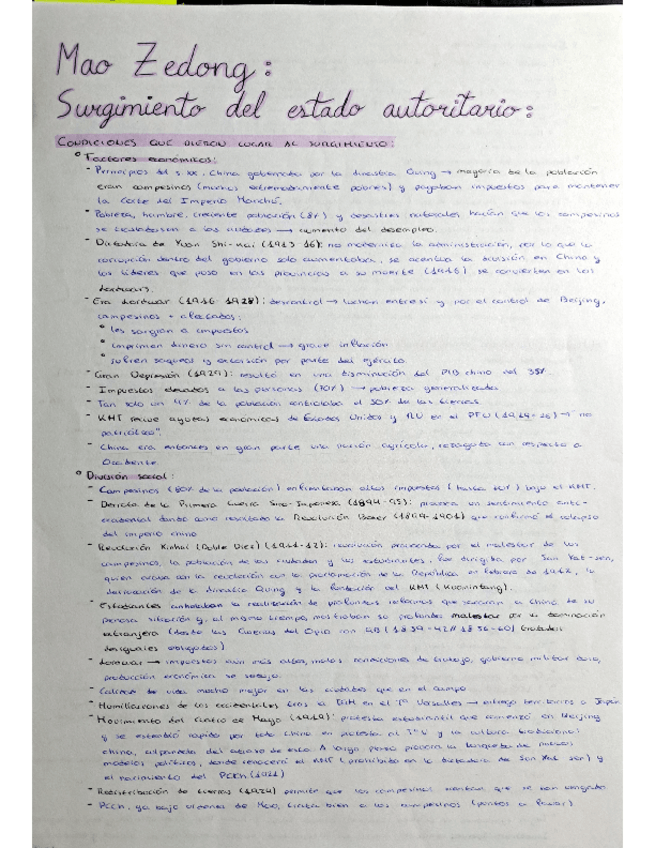 Mao Zedong:
Surgimiento del estado autoritario:
CONDICIONES QUE DIERON LUGAR AL SURGIMIENTO:
° Factores económicos:
- Principios del s. XX. China gobernada por la dinastía Quing → mayoría de la población
eran campesinos (muchos extremadamente pobres) y pagaban impuestos para mantener
la corte del Imperio Manchú.
- Pobreza, hambre, creciente población (8%) y desastres naturales, hacían que los campesinos
se trasladasen a las ciudades → aumento del desempleo.
- Dictadura de Yuan Shi-kai (1913-16): no moderniza la administración, por lo que la
corrupción dentro del gobierno solo aumentaba, se acentúa la división en China y
los líderes que puso en las provincias a su muerte (1916) se convierten en los
warlords.
- Era warlord (1916-1928): descontrol → luchan entre sí y por el control de Beijing,
campesinos + afectados:
° les surgían a impuestos
° imprimen dinero sin control → grave inflación
° sufren saqueos y extorsión por parte del ejército
- Gran Depresión (1929): resultó en una disminución del PIB chino del 35%.
- Impuestos elevados a las personas (70%) → pobreza generalizada
- Tan solo un 4% de la población controlaba el 50% de las tierras.
- KMT recibe ayudas económicas de Estados Unidos y RU en el → "no
patriótico".
- China era entonces en gran parte una nación agrícola, rezagada con respecto a
Occidente.
° División social:
- Campesinos (80% de la población) enfrentaban altos impuestos (hasta %) bajo el KMT.
- Derrota de la Primera Guerra Sino-Japonesa (1894-95): provoca un sentimiento anti-
occidental dando como resultado la Revolución Boxer (1899-1901) que confirmó el colapso
del imperio chino
- Revolución Xinhai (Doble Diez) (1911-12): revolución provocada por el malestar de los
campesinos, la población de las ciudades y los estudiantes. Fue dirigida por Sun Yat-sen,
quien acaba con la revolución con la proclamación de la República en febrero de 1912, la
derrocación de la dinastía Quing y la fundación del KMT (Kuomintang).
- Estudiantes anhelaban la realización de profundas reformas que sacaran a China de su
penosa situación y, al mismo tiempo, mostraban su profundo malestar por la dominación
extranjera (desde las Guerras del Opio con GB (1839-42 // 1856-60) tratados
desiguales obligados)
- Warlords → impuestos aún más altos, malas condiciones de trabajo, gobierno militar duro,
producción económica se redujo.
- Calidad de vida mucho mejor en las ciudades que en el campo
- Humillaciones de los occidentales tras la IGM en el Tº Versalles → entrega territorios a Japón
- Movimiento del Cuatro de Mayo (1919): protesta estudiantil que comenzó en Beijing
y se extendió rápido por toda China en protesta al TºV y la cultura tradicional
china, culpándola del atraso de esta. A largo plazo provocó la búsqueda de nuevos
modelos políticos, donde renacerá el KMT (prohibido en la dictadura de Sun Yat sen) y
el nacimiento del PCCh (1921)
- Redistribución de tierras (1924) permite que los campesinos sientan que se han vengado
- PCCh, ya bajo órdenes de Mao, trata bien a los campesinos (puntos a favor)